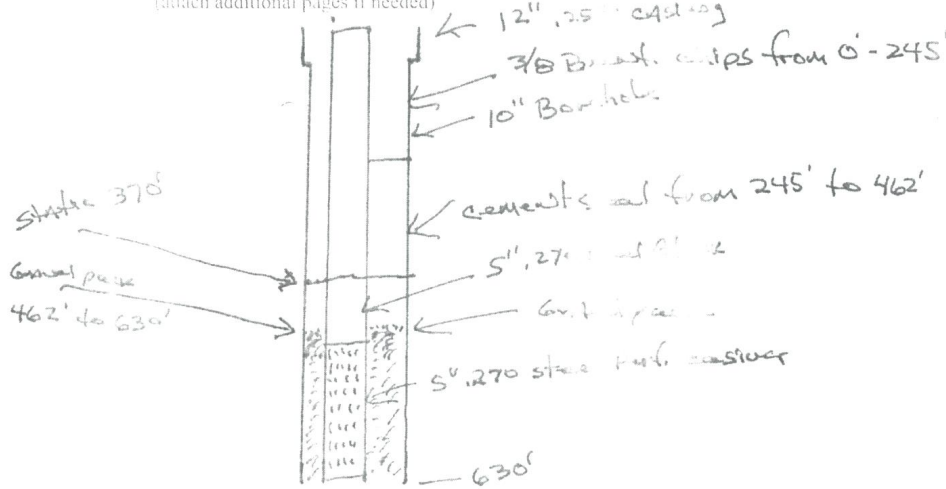 (attach additional pages if needed)
12" .25 casing
3/8 Bent. chips from 0-245'
10" Borehole
Static 370'
cement seal from 245' to 462'
5" .270
Gravel pack
462' to 630'
5" .270 steel perf. casing
630'